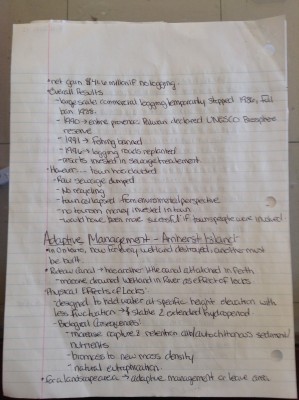 • net gain $41.6 million if no logging
• Overall Results
- large scale commercial logging temporarily stopped 1986, full ban 1988.
- 1990 → entire province Palawan declared UNESCO Biosphere reserve
- 1991 → fishing banned
- 1996 → logging roads replanted
- resorts invested in sewage treatment
• However... town has doubled
- Raw sewage dumped
- No recycling
- town collapsed from environmental perspective
- no tourism money invested in town
- would have been more sucessful if townspeople were involved
Adaptive Management - Amherst Island
• In Ontario, now for every wetland destroyed, another must be built
• Rideau Canal → has another little canal attatched in Perth
- massive drowned wetland in River as effect of locks
• Physical Effects of Locks
- designed to hold water at specific height elevation with less fluctuation → stable & extended hydroperiod
- Biological Consequences:
- increase capture & retention autochthonous sediments/nutrients
- biomass to new mass density
- natural eutrophication
• For a landscape area → adaptive management or leave area